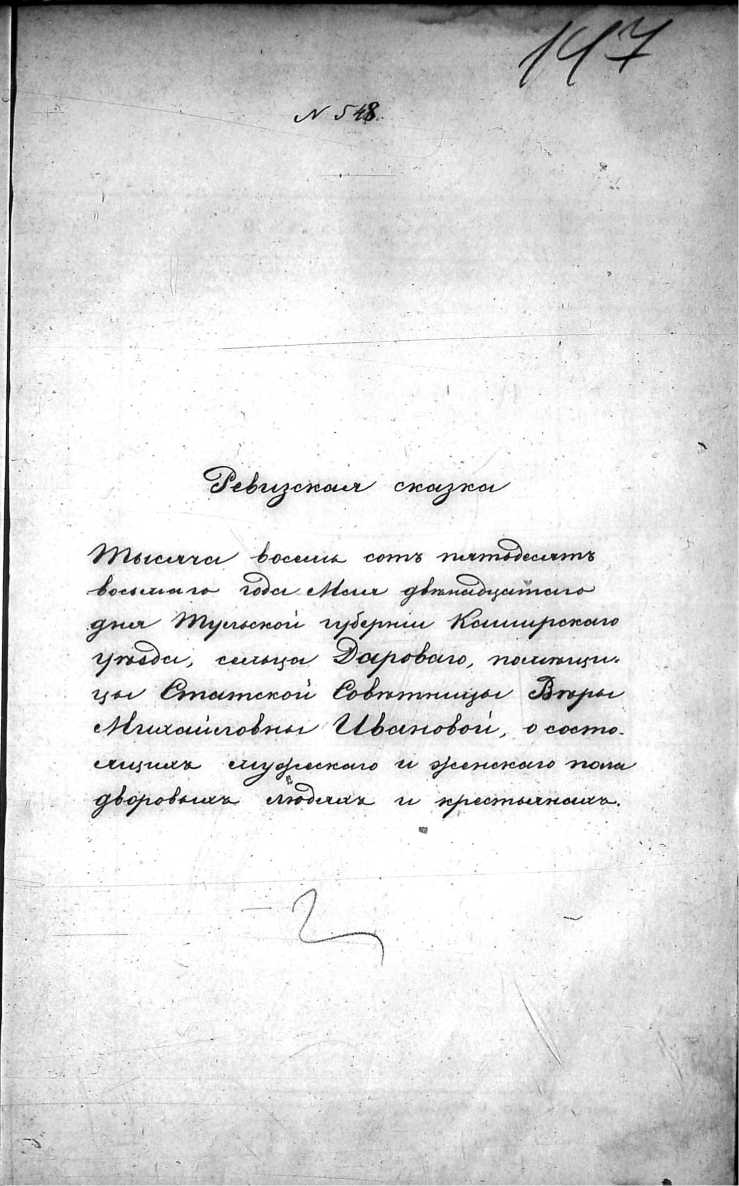 147
N 548.
Ревизская сказка
Тысяча восемь сотъ пятьдесятъ
восьмаго года Мая двѣнадцатаго
дня Тульской губерніи Каширскаго
уѣзда, сельца Дароваго, помѣщи-
цы Статской Совѣтницы Вѣры
Михайловны Ивановой, о состо-
ящихъ мужескаго и женскаго пола
дворовыхъ людяхъ и крестьянахъ.